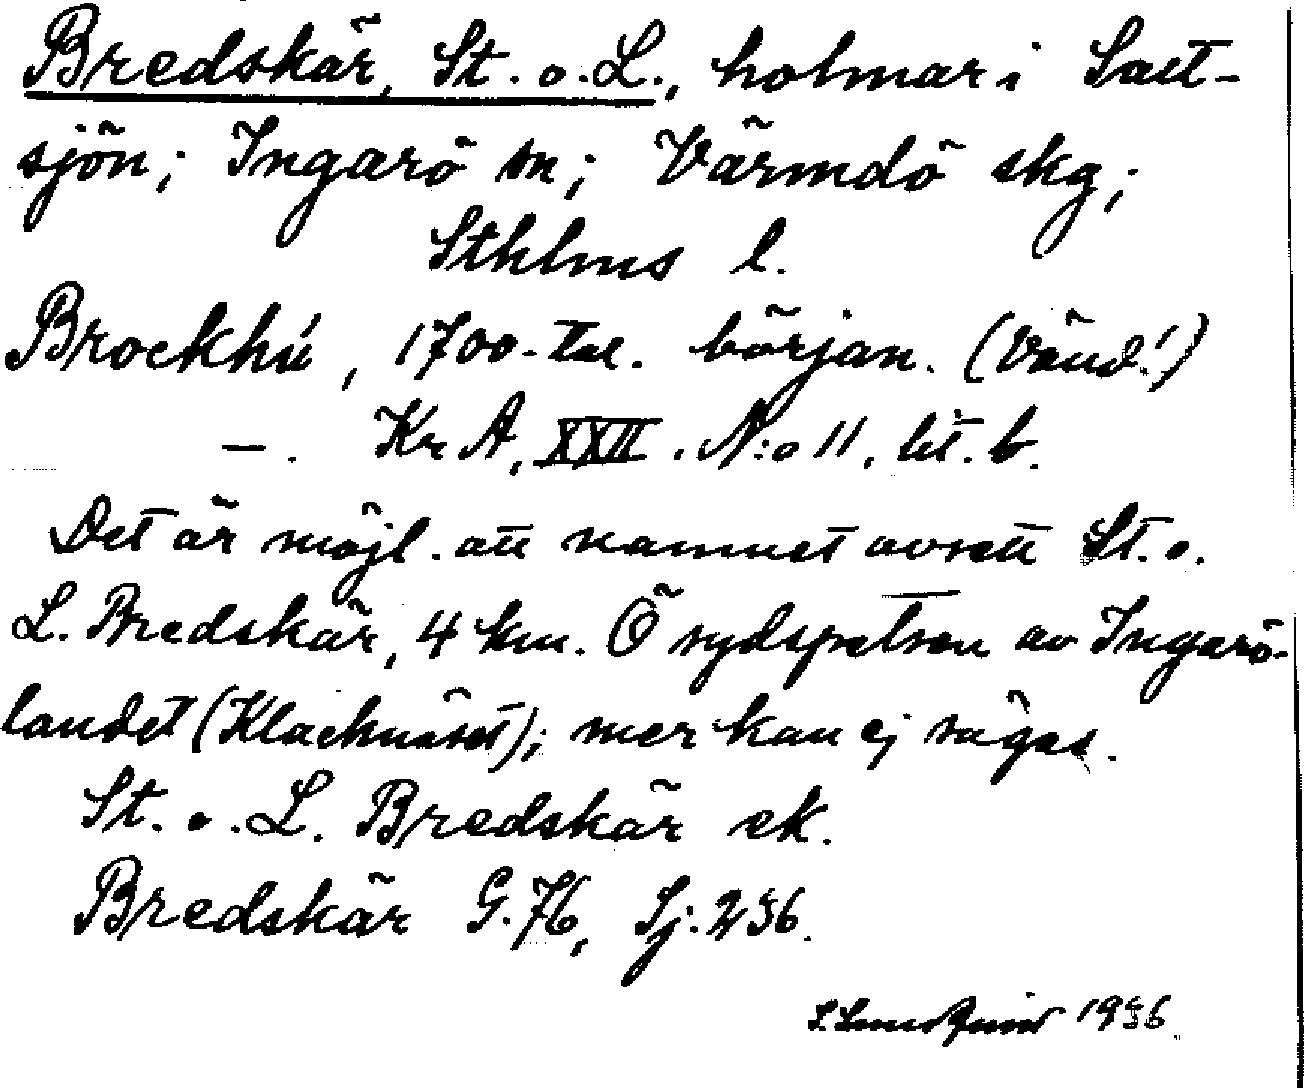 Bredskär, St. o. L., holmar i Salt-
sjön; Ingarö sn; Värmdö skg;
Sthlms l.
Brockhú, 1700-tal. början. (Vänd!)
—. KrA, XXII. N:o 11, lit. b.
Det är möjl. att namnet avsett St. o.
L. Bredskär, 4 km. Ö sydspetsen av Ingarö-
landet (Klacknäset); mer kan ej sägas.
St. o. L. Bredskär ek.
Bredskär G. 76, Sj: 236.
1936